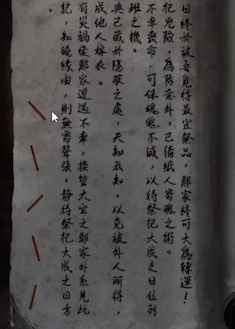 日終於被妾覓得最宜祭品，鄭家終可大為轉運！
犯兇險，為防意外，已備紙人寄魂之術。
不幸喪命，可保魂魄不滅，以待祭祀大成之日位列
班之機。
典已藏於隱蔽之處，天知我知。以免被外人所得，
成他人嫁衣。
有災禍使鄭家遭逢不幸，接管大宅之鄭家外系見此
記，知曉緣由，則無需聲張，靜待祭祀大成之日方
。